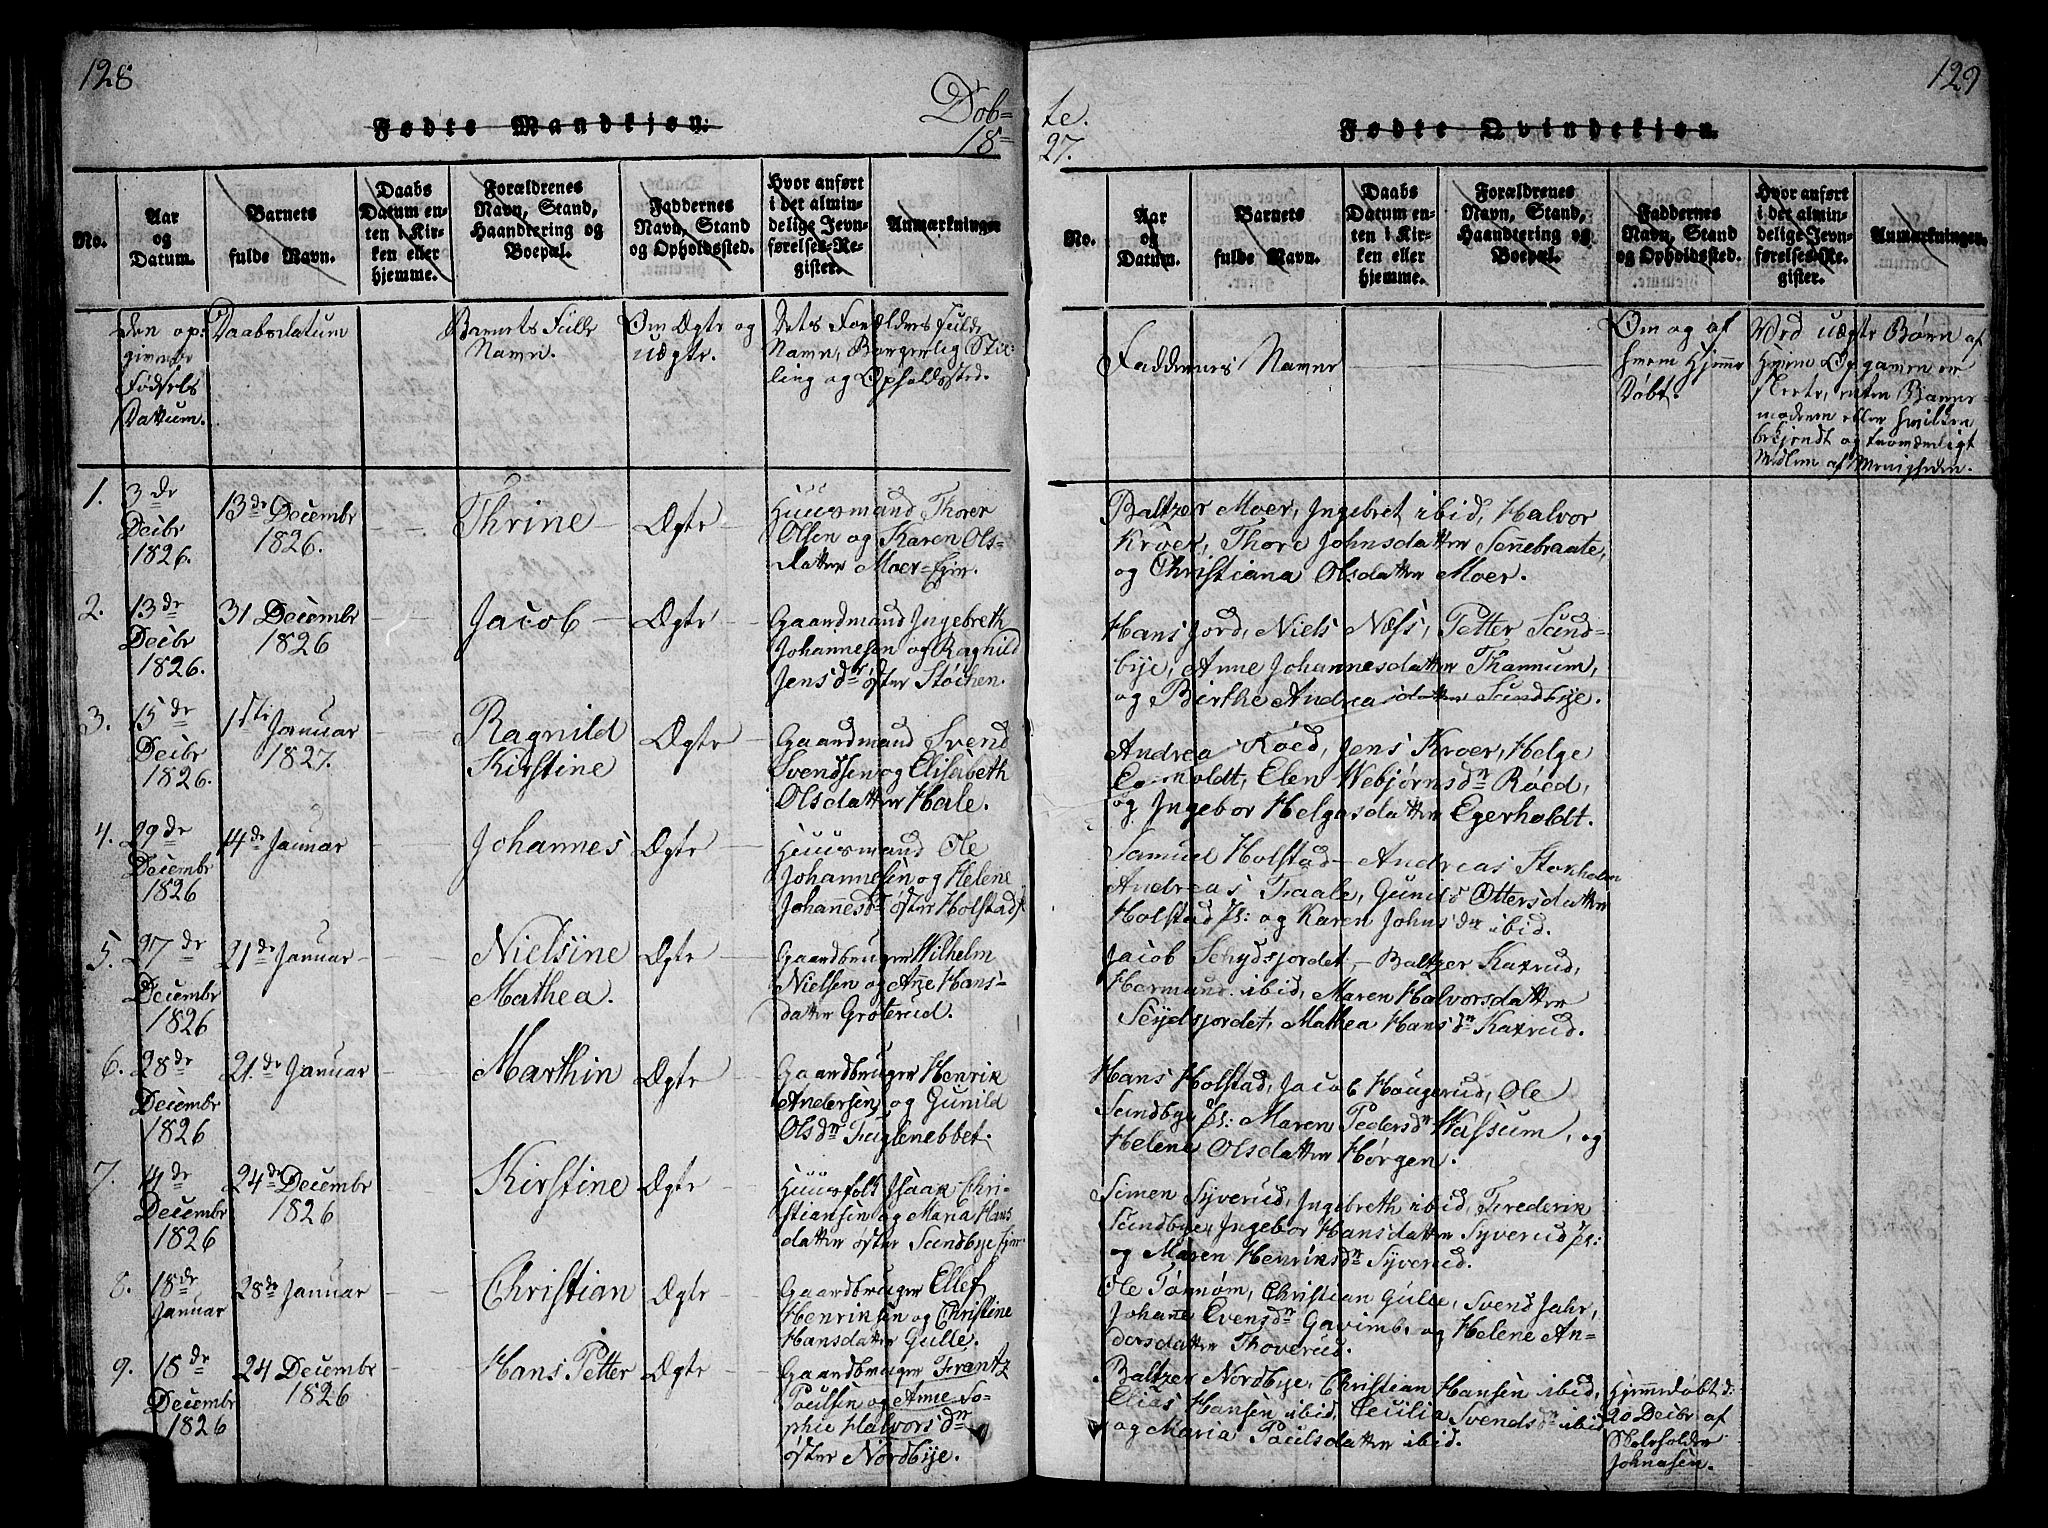 128
Døb=
18=
Fødte Mandkjøn.
No.
Aar
og
Datum.
Barnets
fulde Navn.
Daabs
Datum en-
ten i Kir-
ken eller
hjemme.
Forældrenes
Navn, Stand,
Haandtering og
Boepæl.
Faddernes
Navn, Stand
og Opholdssted.
Hvor anført
i det almin-
delige Jevn-
førelses-Re-
gister.
Anmærkninger.
Den op:
givende
Fødsels
Dattum.
Daabsdatum
Barnets Fulle
Navn.
Om Ægte og
uægte.
Dets Forældres Fulde
Navn, Borgerlig Stil-
ling og Opholdssted.
1.
3de
Decbr
1826.
13de Decembr
1826.
Thrine
Ægte
Huusmand Thorer
Olsen og Karen Ols-
datter Moer=Ejer.
2.
13de
Decbr
1826.
31 Decembr
1826
Jacob
Ægte
Gaardmand Ingebreth
Johannesen og Raghild
Jensdr øster Støchen.
3.
15de
Decbr
1826.
1ste Januar
1827.
Ragnild
Kirstine
Ægte
Gaardmand Svend
Svendsen og Elisabeth
Olsdatter Hale.
4.
29de
Decembr
1826
14de Januar
Johannes
Ægte
Huusmand Ole
Johannesen og Helene
Johanesdr øster Holstad
5.
27de
Decembr
1826
21de Januar
Nielsine
Mathea.
Ægte
Gaardbruger Wilhelm
Nielsen og Anne Hans-
datter Groterud.
6.
28de
Decembr
1826
21de Januar
Marthin
Ægte
Gaardbruger Henrik
Andersen og Gunild
Olsdr Fuglenebbet.
7.
4de
Decembr
1826
24de Decembr
1826
Kirstine
Ægte
Huusfolk Isaak Chri-
stiansen og Maria Hans
datter øster Sundbye Ejer
8.
18de
Januar
28de Januar
Christian
Ægte
Gaardbruger Ellef
Henriksen og Christine
Hansdatter Gulle.
9.
15de
Decembr
1826
24 Decembr
1826
Hans Petter
Ægte
Gaardbruger Frantz
Poulsen og Anne So-
phie Halvorsdr
øster Nordbye.
te.
27.
129
Fødte Qvindekjøn.
No.
Aar
og
Datum.
Barnets
fulde Navn.
Daabs
Datum en-
ten i Kir-
ken eller
hjemme.
Forældrenes
Navn, Stand,
Haandtering og
Boepæl.
Faddernes
Navn, Stand
og Opholdssted.
Hvor anført
i det almin-
delige Jevn-
førelses-Re-
gister.
Anmærkninger.
Faddernes Navne
Om og af
hvem Hjemme
Døbt.
Ved uægte Børn af
hvem Opgaven er
skeete, enten Barne-
moderen eller hvilken
bekjendt og troværdigt
Medlem af Menigheden.
Baltzer Moer, Ingebret ibid, Halvor
Kroer, Thore Johnsdatter Sønnebraate,
og Christiana Olsdatter Moer.
Hans Jord, Niels Næss, Petter Sund-
bye, Anne Johannesdatter Thannum,
og Birthe Andrea datter Sundbye.
Andrea Røed, Jens Kroer, Helge
Egerholdt, Elen Webjørnsdr Røed,
og Ingebor Helgesdatter Egerholdt.
Samuel Holstad, Andreas Storholm
Andreas Fraale, Gunild Ottersdatter
Holstad pl: og Karen Johnsdr ibid.
Jacob Schydsjordet, Baltzer Kaxrud,
Hermund ibid, Maren Halvorsdatter
Scydsjordet, Mathea Hansdr Kaxrud.
Hans Holstad, Jacob Haugerud, Ole
Sundbye pl: Maren Pedersdr Wassum, og
Helene Olsdatter Hørgen.
Simen Syverud, Ingebreth ibid, Frederik
Sundbye, Ingebor Hansdatter Syverud pl:
og Maren Henriksdr Syverud.
Ole Tømøm, Christian Gulle, Svend Jahr,
Johane Evensdr Gavimb. og Helene An-
dersdatter Thoverud.
Baltzer Nordbye, Christian Hansen ibid,
Elias Hansen ibid, Cecilia Svendsdr ibid
og Maria Poulsdatter ibid.
Hjemmedøbt d:
20 Decbr af
Skoleholder
Johnasen.